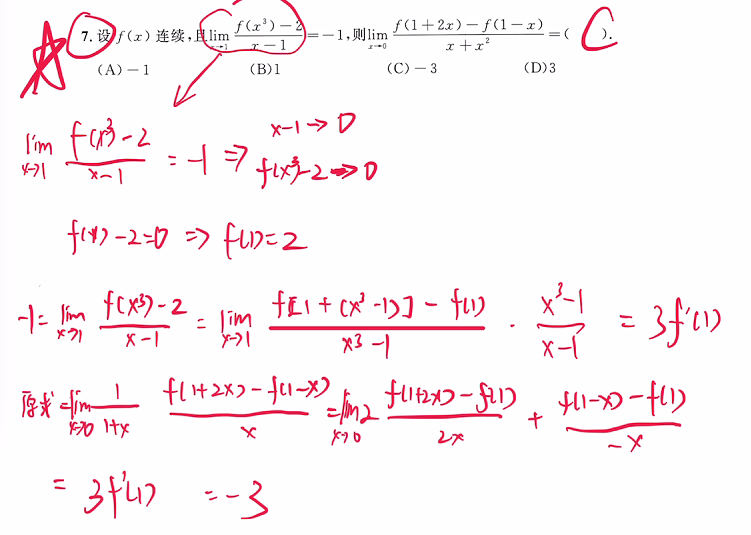 7. 设 f(x) 连续,且 lim_{x→1} (f(x³)-2)/(x-1) = -1,则 lim_{x→0} (f(1+2x)-f(1-x))/(x+x²) = ( C ).
(A)-1 (B)1 (C)-3 (D)3
lim_{x→1} (f(x³)-2)/(x-1) = -1 ⇒ x-1→0
f(x³)-2→0
f(1)-2=0 ⇒ f(1)=2
-1 = lim_{x→1} (f(x³)-2)/(x-1) = lim_{x→1} (f[1+(x³-1)]-f(1))/(x³-1) · (x³-1)/(x-1) = 3f'(1)
原式 = lim_{x→0} 1/(1+x) (f(1+2x)-f(1-x))/x = lim_{x→0} 2 (f(1+2x)-f(1))/(2x) + (f(1-x)-f(1))/(-x)
= 3f'(1) = -3